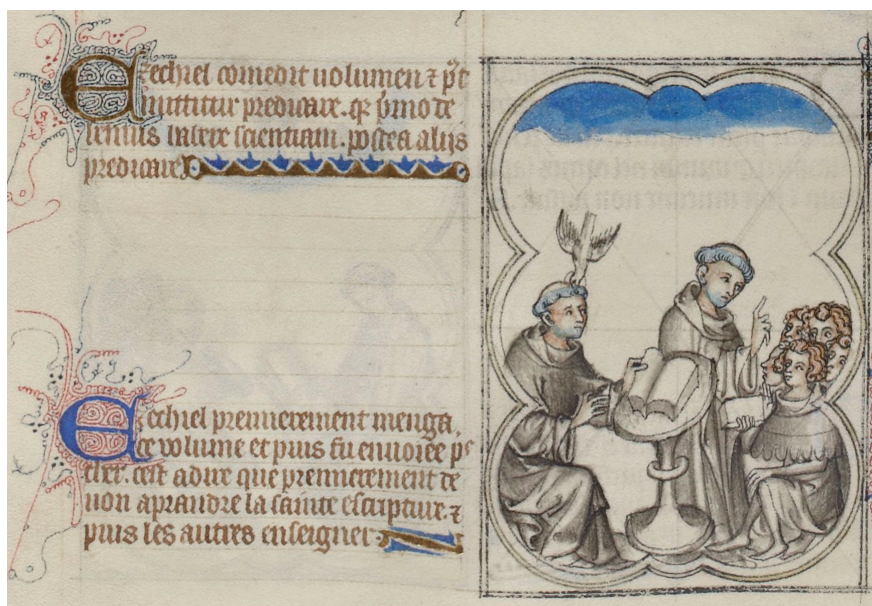 Ezechiel comedit uolumen ⁊ p̃t
mittitur predicare. qr p̃mo de
bemus labere scientiam. postea alijs
predicare
Ezechiel premierement menga
ce volume et puis fu enuoiee p̃s
chier. cest adire que premierement de
uon aprandre la sainte escripture. ⁊
puis les autres enseigner